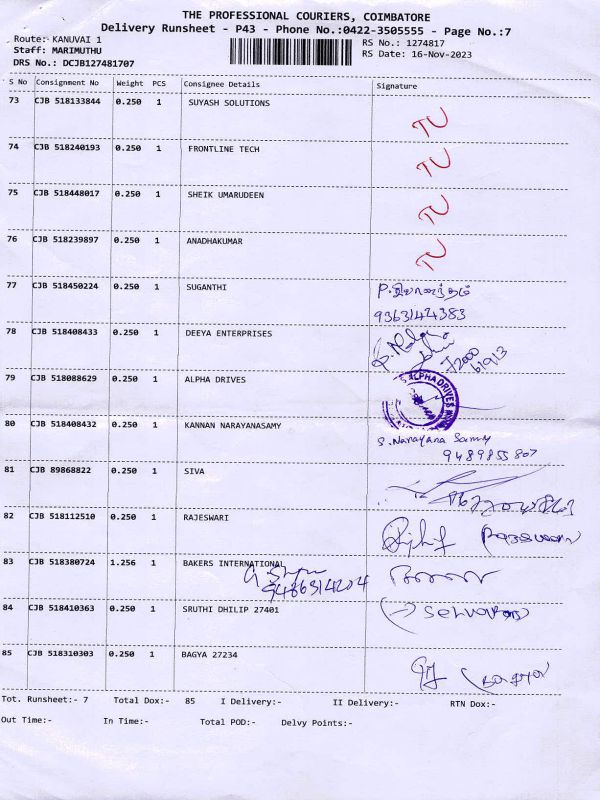 THE PROFESSIONAL COURIERS, COIMBATORE
Delivery Runsheet - P43 - Phone No.:0422-3505555 - Page No.:7
Route: KANUVAI 1
RS No.: 1274817
Staff: MARIMUTHU
RS Date: 16-Nov-2023
DRS No.: DCJB127481707
S No Consignment No Weight PCS Consignee Details Signature
73 CJB 518133844 0.250 1 SUYASH SOLUTIONS TU
74 CJB 518240193 0.250 1 FRONTLINE TECH TU
75 CJB 518448017 0.250 1 SHEIK UMARUDEEN TU
76 CJB 518239897 0.250 1 ANADHAKUMAR TU
77 CJB 518450224 0.250 1 SUGANTHI
9363142383
78 CJB 518408433 0.250 1 DEEYA ENTERPRISES
79 CJB 518088629 0.250 1 ALPHA DRIVES ALPHA DRIVES
80 CJB 518408432 0.250 1 KANNAN NARAYANASAMY S. Narayana Samy
9489855807
81 CJB 89868822 0.250 1 SIVA
82 CJB 518112510 0.250 1 RAJESWARI
83 CJB 518380724 1.256 1 BAKERS INTERNATIONAL
9486314204
84 CJB 518410363 0.250 1 SRUTHI DHILIP 27401
85 CJB 518310303 0.250 1 BAGYA 27234
Tot. Runsheet:- 7 Total Dox:- 85 I Delivery:- II Delivery:- RTN Dox:-
Out Time:- In Time:- Total POD:- Delvy Points:-